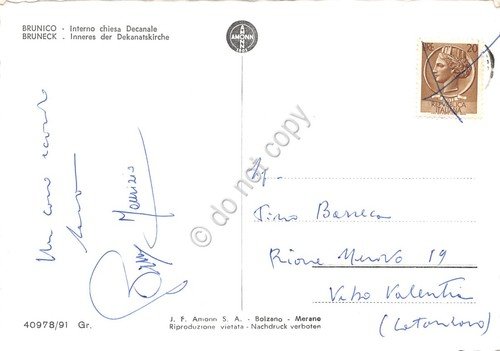 BRUNICO - Interno chiesa Decanale
BRUNECK - Inneres der Dekanatskirche
AMONN
LIRE 20
REPUBBLICA
ITALIANA
Un caro ricordo
Maurizio
do not copy
Tino Barreca
Rione 19
Vibo Valentia
(Catanzaro)
40978/91 Gr.
J. F. Amonn S. A. - Bolzano - Merano
Riproduzione vietata - Nachdruck verboten